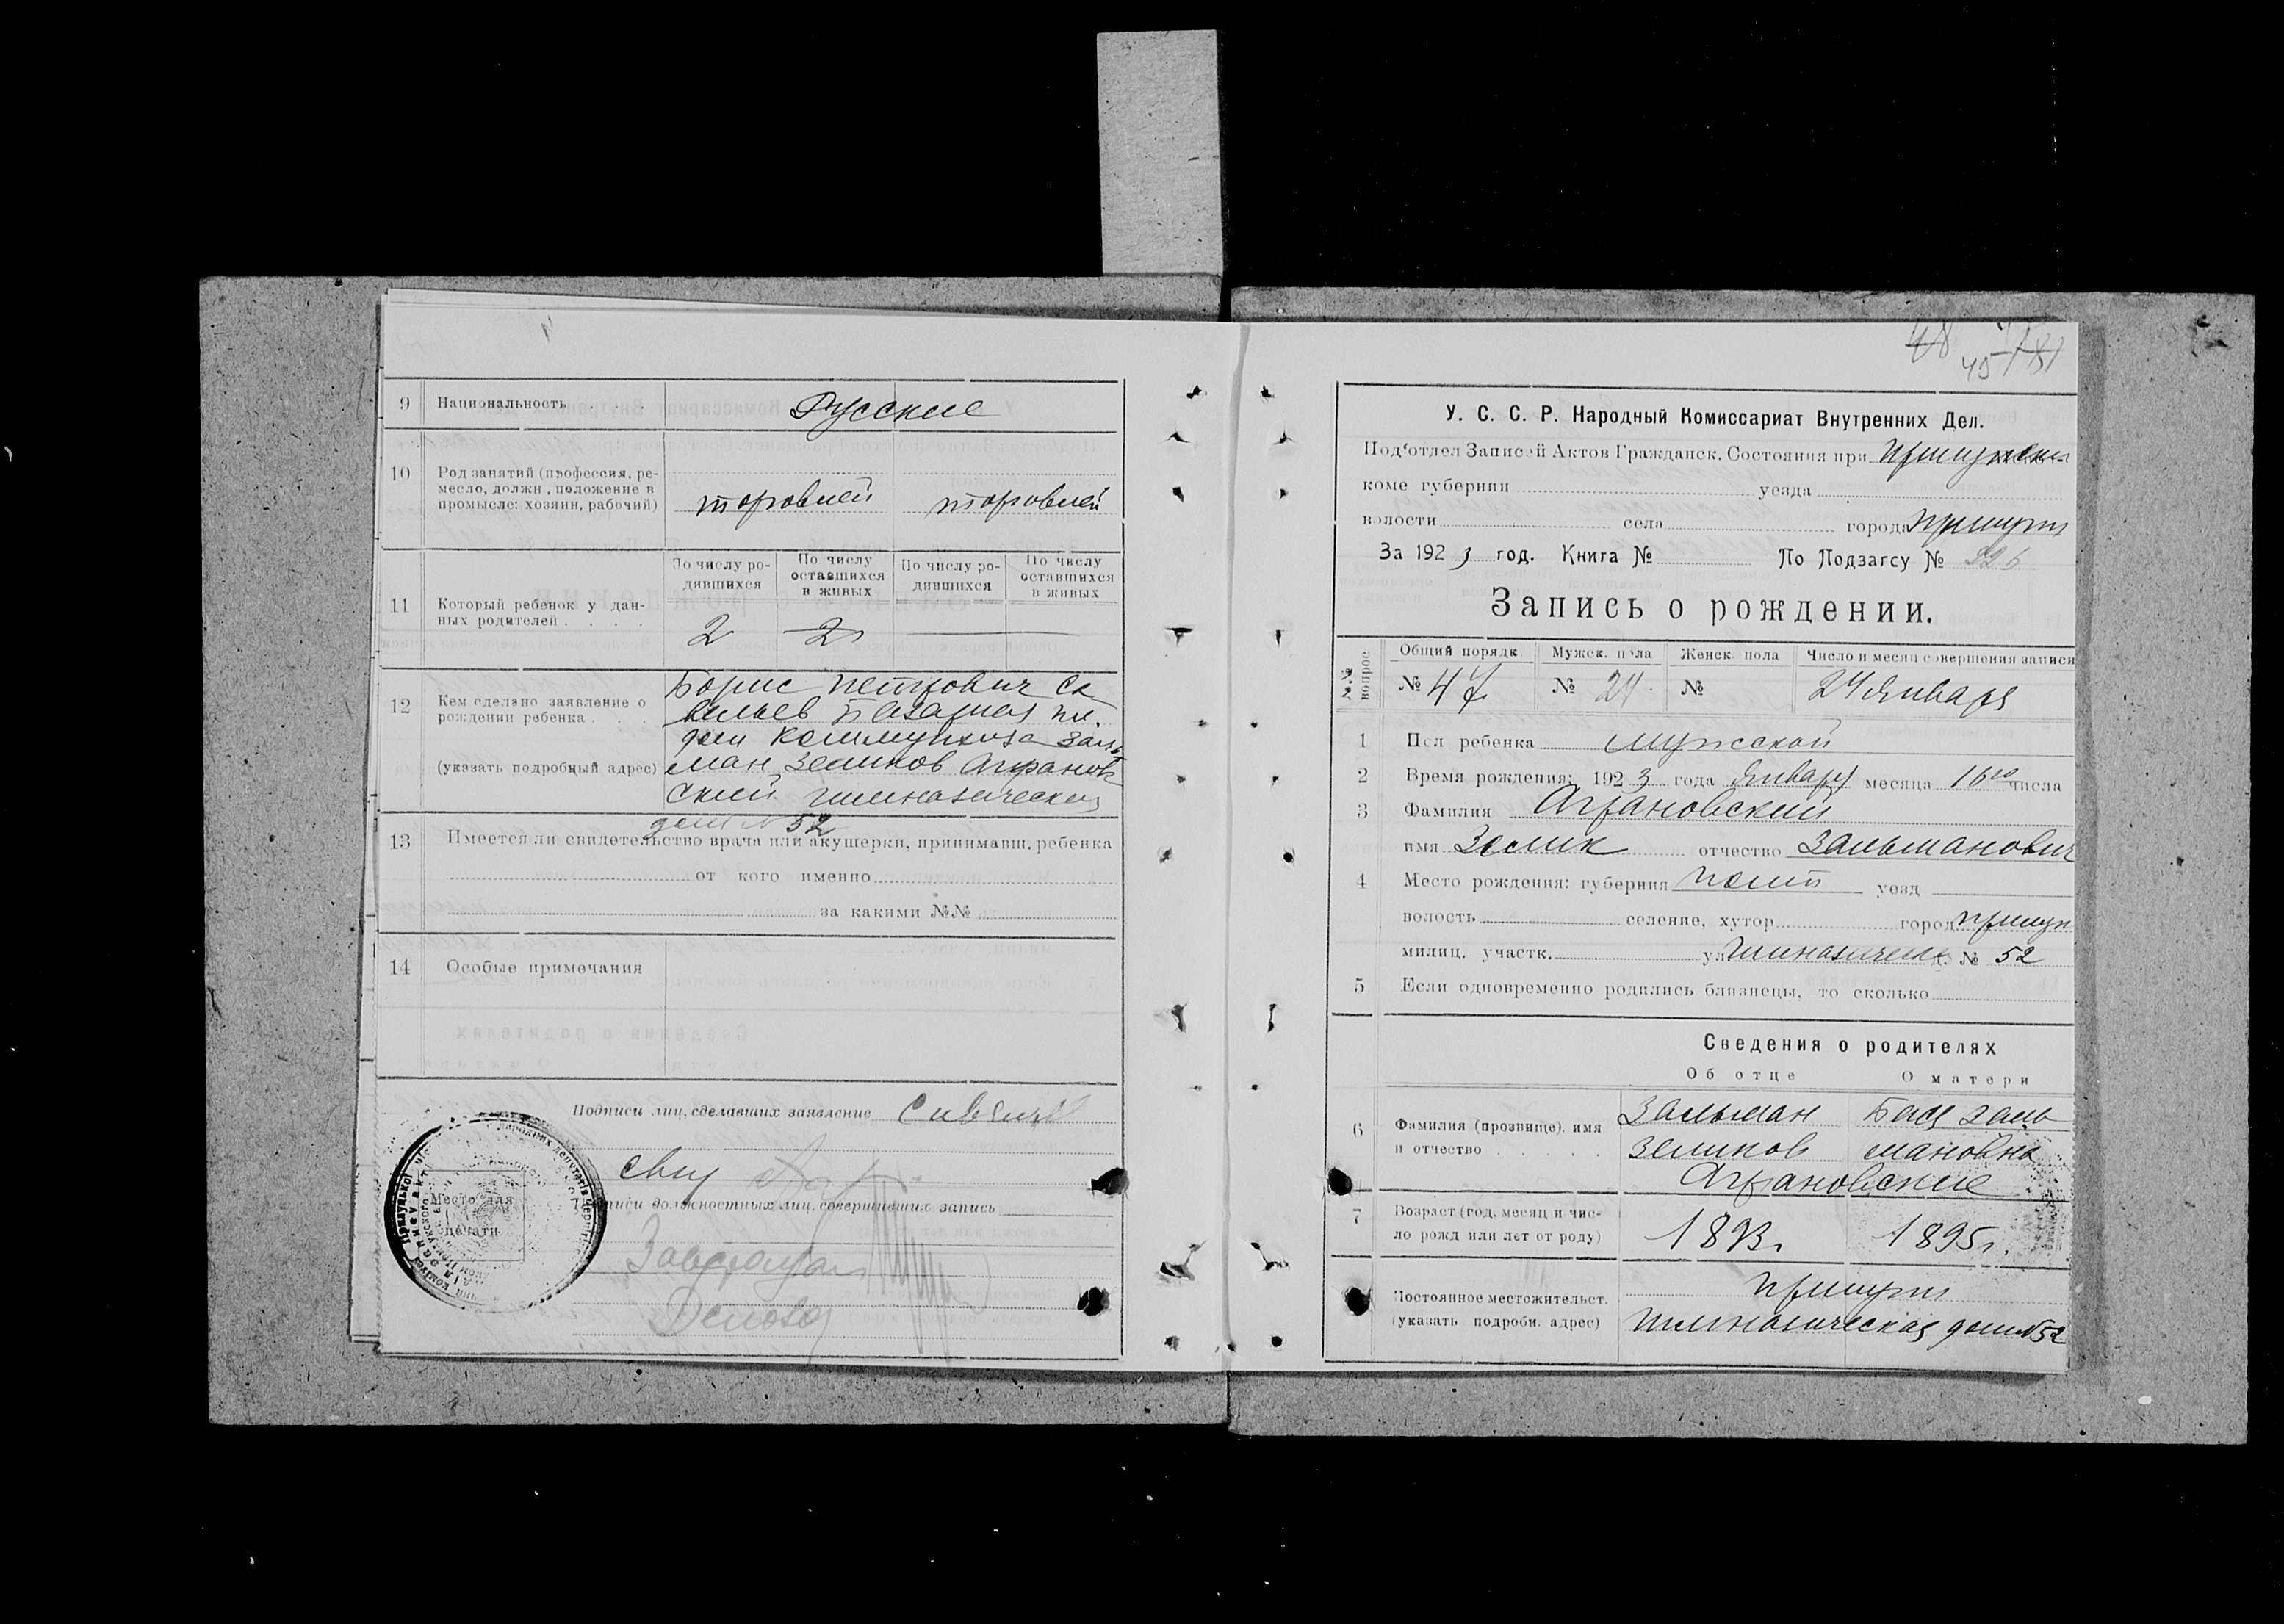 9 Национальность Русские
10 Род занятий (профессия, ре-
месло, должн., положение в
промысле: хозяин, рабочий)
торговлей торговлей
По числу ро-
дившихся
По числу
оставшихся
в живых
По числу ро-
дившихся
По числу
оставшихся
в живых
11 Который ребенок у дан-
ных родителей . . . .
2 2
12 Кем сделано заявление о
рождении ребенка . . .
(указать подробный адрес)
Борис Петрович Са
вельев Базарная пл.
дом Коммунхоза Заль
ман Зеликов Агранов
ский Гимназическая
дом № 52
13 Имеется ли свидетельство врача или акушерки, принимавш. ребенка
от кого именно
за какими №№
14 Особые примечания
Подписи лиц, сделавших заявление
Подписи должностных лиц, совершивших запись
Место для
печати
48
45
У. С. С. Р. Народный Комиссариат Внутренних Дел.
Под'отдел Записей Актов Гражданск. Состояния при Прилукском
коме губернии уезда
волости села города Прилуки
За 1923 год. Книга № По Подзагсу №
Запись о рождении.
№№ вопрос
Общий порядк. Мужск. пола Женск. пола Число и месяц совершения записи
№ 47 № 24 № 24 Января
1 Пол ребенка мужской
2 Время рождения: 1923 года Января месяца 16го числа
3 Фамилия Аграновский
имя Зелик отчество Зальманович
4 Место рождения: губерния Полт уезд
волость селение, хутор город Прилук
милиц. участк. ул. Гимназическ д. № 52
5 Если одновременно родились близнецы, то сколько
Сведения о родителях
Об отце О матери
6 Фамилия (прозвище), имя
и отчество . . . . .
Зальман Бася Заль
Зеликов мановна
Аграновские
7 Возраст (год, месяц и чис-
ло рожд. или лет от роду)
1893г. 1895г.
Постоянное местожительст.
(указать подробн. адрес)
Прилуки
Гимназическая дом № 52